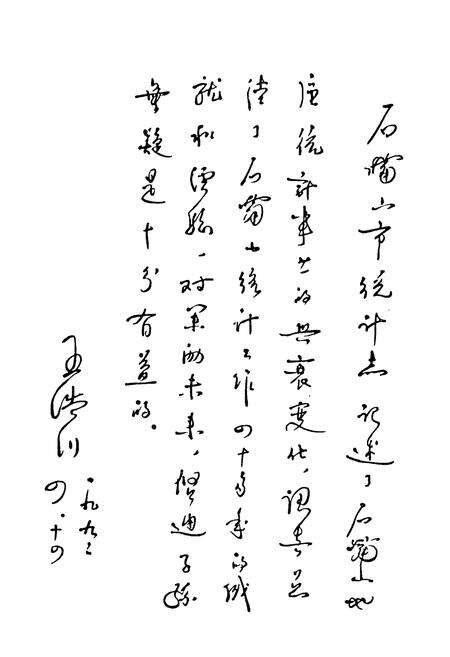 石嘴山市统计志记述了石嘴山地
区统计事业的兴衰变化,认真总
结了石嘴山统计工作四十多年的成
就和经验,对策励未来,启迪子孙
無疑是十分有益的。
王
一九九二
四·十四